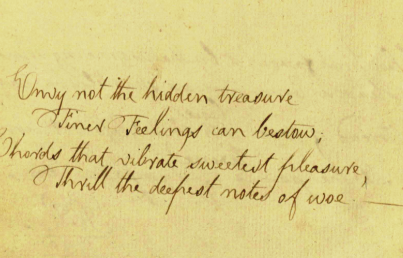 Envy not the hidden treasure
Finer Feelings can bestow;
Chords that vibrate sweetest pleasure,
Thrill the deepest notes of woe.—